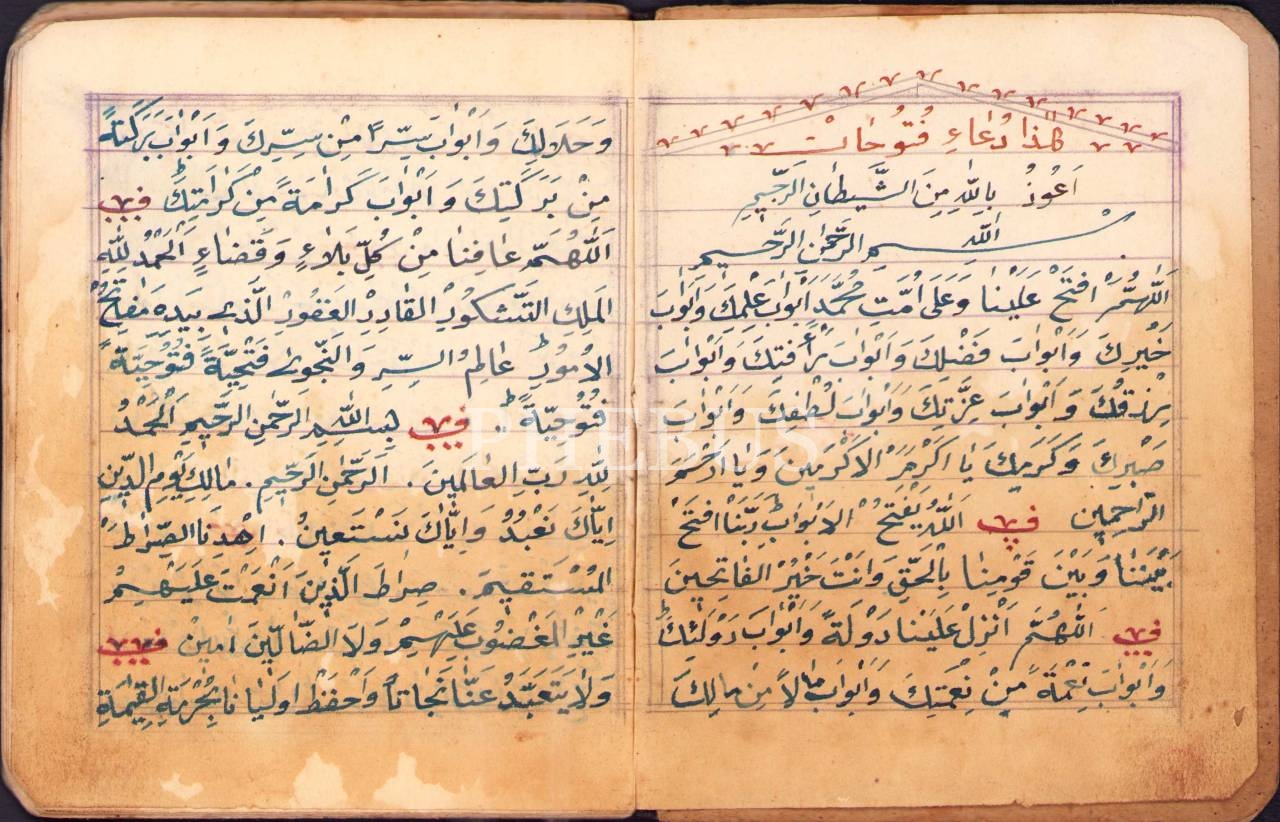 هٰذا دُعَاءِ فُتُوحَاتْ
اَعُوذُ بِاللّٰهِ مِنَ الشَّيْطَانِ الرَّجِيمِ
بِسْمِ اللّٰهِ الرَّحْمٰنِ الرَّحِيمِ
اَللّٰهُمَّ افْتَحْ عَلَيْنَا وَعَلَى اُمَّتِ مُحَمَّدَ اَبْوَابَ عِلْمِكَ وَاَبْوَابَ
خَيْرِكَ وَاَبْوَابَ فَضْلِكَ وَاَبْوَابَ رَأْفَتِكَ وَاَبْوَابَ
رِزْقِكَ وَاَبْوَابَ عِزَّتِكَ وَاَبْوَابَ لُطْفِكَ وَاَبْوَابَ
صَبْرِكَ وَكَرَمِكَ يَا اَكْرَمَ الْاَكْرَمِينَ وَيَا اَرْحَمَ
الرَّاحِمِينِ اَللّٰهُ يَفْتَحُ الْاَبْوَابَ رَبَّنَا افْتَحْ
بَيْنَنَا وَبَيْنَ قَوْمِنَا بِالْحَقِّ وَاَنْتَ خَيْرُ الْفَاتِحِينَ
اَللّٰهُمَّ اَنْزِلْ عَلَيْنَا دَوْلَةً وَاَبْوَابَ دَوْلَتِكَ
وَاَبْوَابَ نِعْمَةً مِنْ نِعْمَتِكَ وَاَبْوَابَ مَالاً مِنْ مَالِكَ
وَحَلَالِكَ وَاَبْوَابَ سِرّاً مِنْ سِرِّكَ وَاَبْوَابَ بَرَكَتَةً
مِنْ بَرَكَتِكَ وَاَبْوَابَ كَرَامَةً مِنْ كَرَامَتِكَ
اَللّٰهُمَّ عَافِنَا مِنْ كُلِّ بَلَاءٍ وَقَضَاءٍ اَلْحَمْدُ لِلّٰهِ
الْمَلِكِ الشَّكُورِ الْقَادِرِ الْغَفُورْ الَّذِي بِيَدِهِ مَفَاتِحُ
الْاُمُورِ عَالِمُ السِّرِ وَالنَّجْوٰى فَتْحِيَّةً فُتُوحِيَّةً
فُتُوحِيَّةً بِسْمِ اللّٰهِ الرَّحْمٰنِ الرَّحِيمِ اَلْحَمْدُ
لِلّٰهِ رَبِّ الْعَالَمِينَ . اَلرَّحْمٰنِ الرَّحِيمِ . مَالِكِ يَوْمِ الدِّينِ
اِيَّاكَ نَعْبُدُ وَاِيَّاكَ نَسْتَعِينُ . اِهْدِنَا الصِّرَاطَ
الْمُسْتَقِيمَ . صِرَاطَ الَّذِينَ اَنْعَمْتَ عَلَيْهِمْ
غَيْرِ الْمَغْضُوبِ عَلَيْهِمْ وَلَا الضَّالِّينَ اٰمِينْ
وَلَا يَتَعَبَّدُ عَنَّا وَاحْفَظْ اَوْلِيَانَا بِحُرْمَةِ
PHEBUS